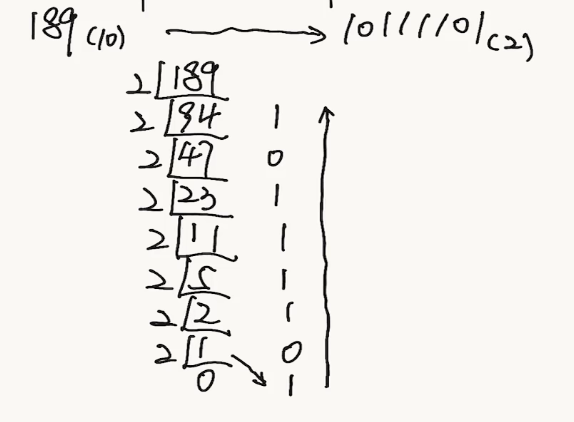 189(10) → 10111101(2)
2 189
2 94 1
2 47 0
2 23 1
2 11 1
2 5 1
2 2 1
2 1 0
0 1